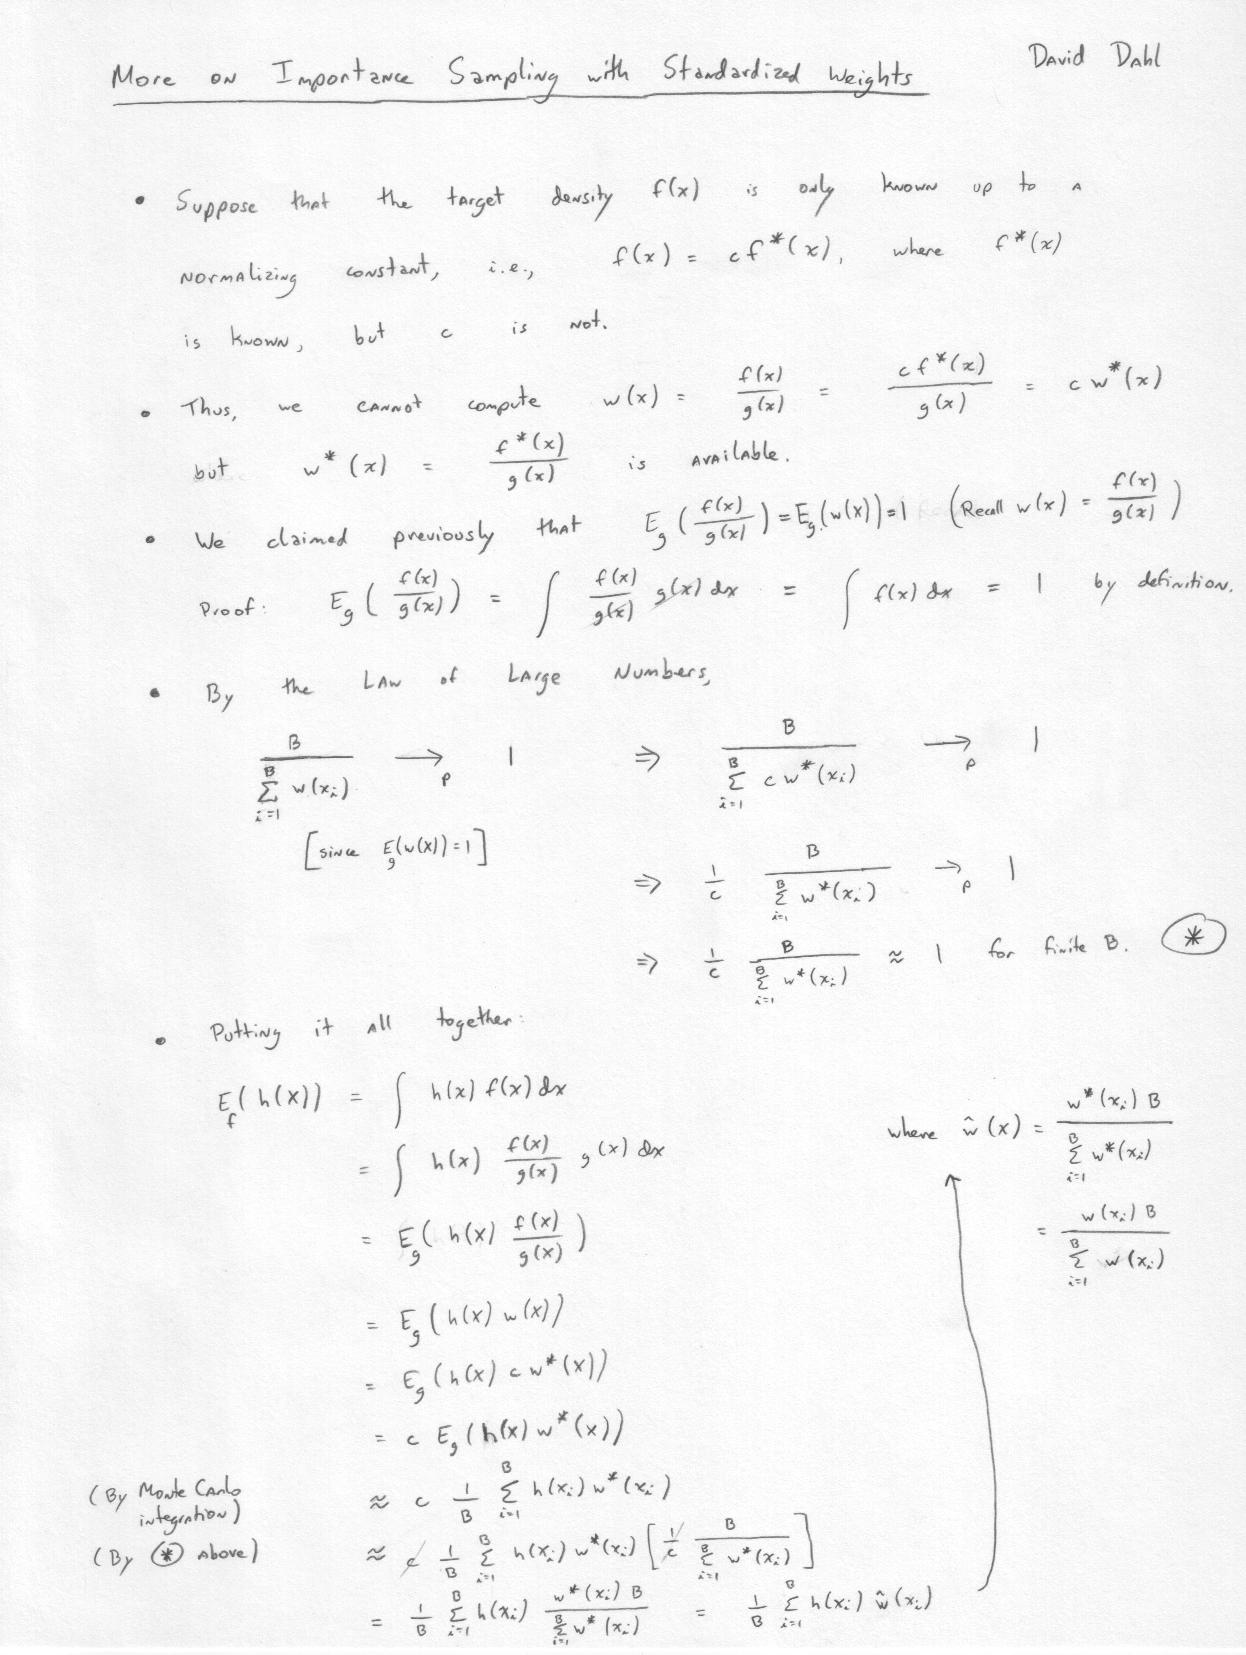 David Dahl
More on Importance Sampling with Standardized Weights
• Suppose that the target density f(x) is only known up to a
normalizing constant, i.e., f(x) = c f*(x), where f*(x)
is known, but c is not.
• Thus, we cannot compute w(x) = f(x)/g(x) = c f*(x)/g(x) = c w*(x)
but w*(x) = f*(x)/g(x) is available.
• We claimed previously that E_g(f(x)/g(x)) = E_g(w(x)) = 1 (Recall w(x) = f(x)/g(x))
Proof: E_g(f(x)/g(x)) = ∫ f(x)/g(x) g(x) dx = ∫ f(x) dx = 1 by definition.
• By the Law of Large Numbers,
B / ∑_{i=1}^B w(x_i) →_p 1 ⇒ B / ∑_{i=1}^B c w*(x_i) →_p 1
[since E_g(w(x)) = 1]
⇒ 1/c B / ∑_{i=1}^B w*(x_i) →_p 1
⇒ 1/c B / ∑_{i=1}^B w*(x_i) ≈ 1 for finite B. (*)
• Putting it all together:
E_f(h(x)) = ∫ h(x) f(x) dx
= ∫ h(x) f(x)/g(x) g(x) dx
= E_g(h(x) f(x)/g(x))
= E_g(h(x) w(x))
= E_g(h(x) c w*(x))
= c E_g(h(x) w*(x))
(By Monte Carlo integration) ≈ c 1/B ∑_{i=1}^B h(x_i) w*(x_i)
(By (*) above) ≈ c 1/B ∑_{i=1}^B h(x_i) w*(x_i) [1/c B / ∑_{i=1}^B w*(x_i)]
= 1/B ∑_{i=1}^B h(x_i) w*(x_i) B / ∑_{i=1}^B w*(x_i) = 1/B ∑_{i=1}^B h(x_i) ŵ(x_i)
where ŵ(x) = w*(x_i) B / ∑_{i=1}^B w*(x_i)
= w(x_i) B / ∑_{i=1}^B w(x_i)